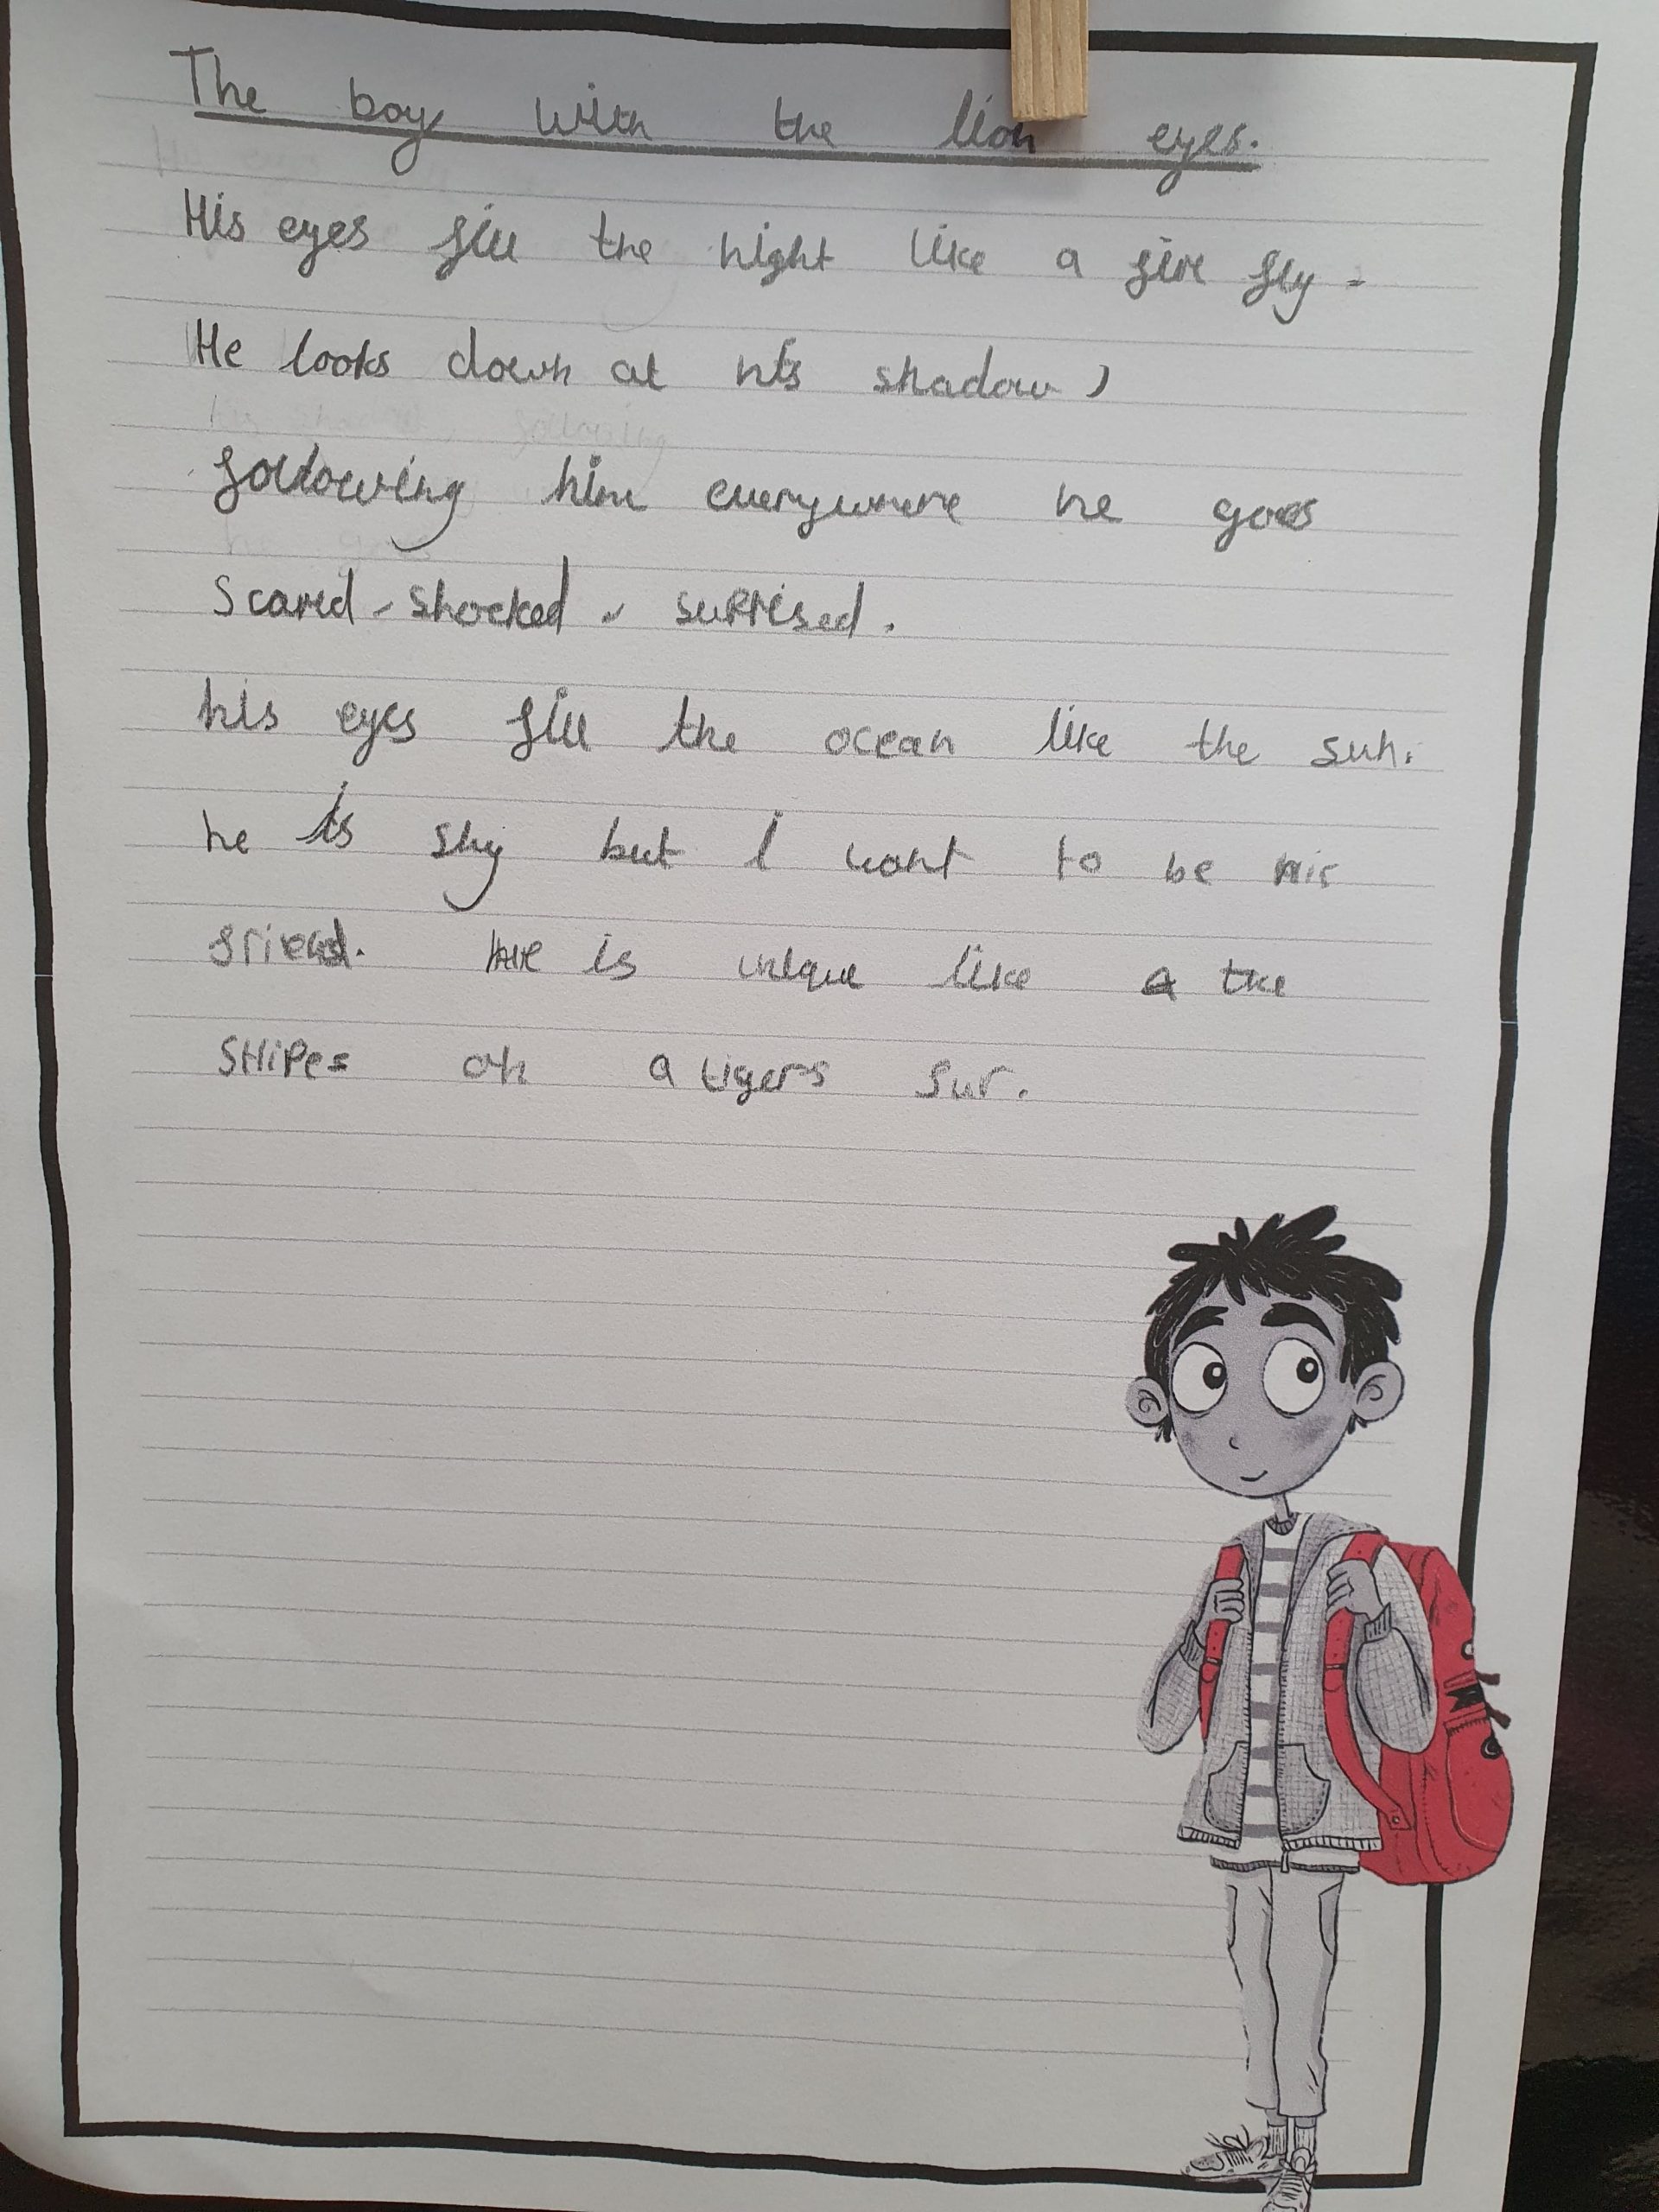 The boy with the lion eyes.
His eyes fill the night like a fire fly.
He looks down at his shadow,
following him everywhere he goes
Scared - shocked - suprised.
his eyes fill the ocean like the sun.
he is shy but I want to be his
friend. He is unique like a the
stripes on a tigers fur.